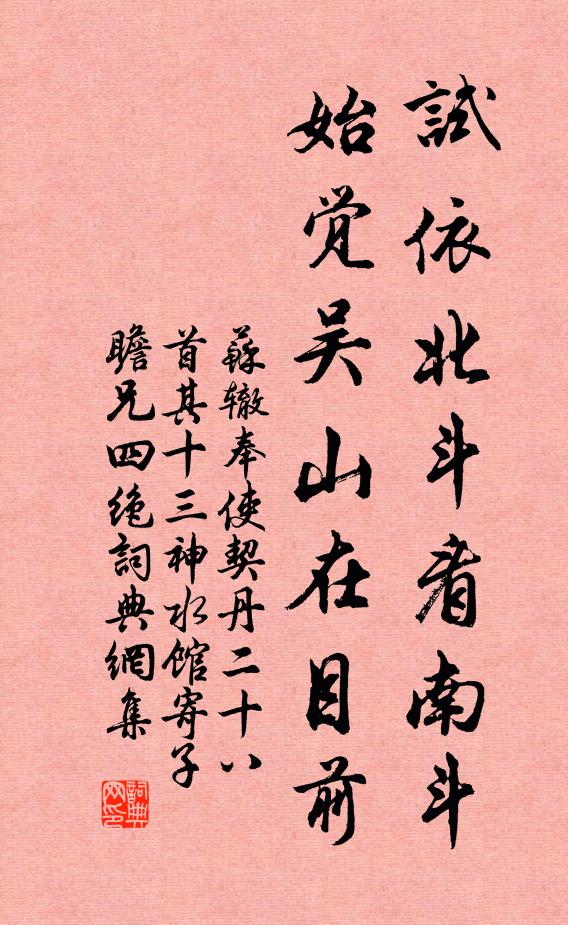 試依北斗看南斗
始觉吴山在目前
蘇辙奉使契丹二十八
首其十三神水馆寄子
瞻兄四绝詞典網集
詞典网印